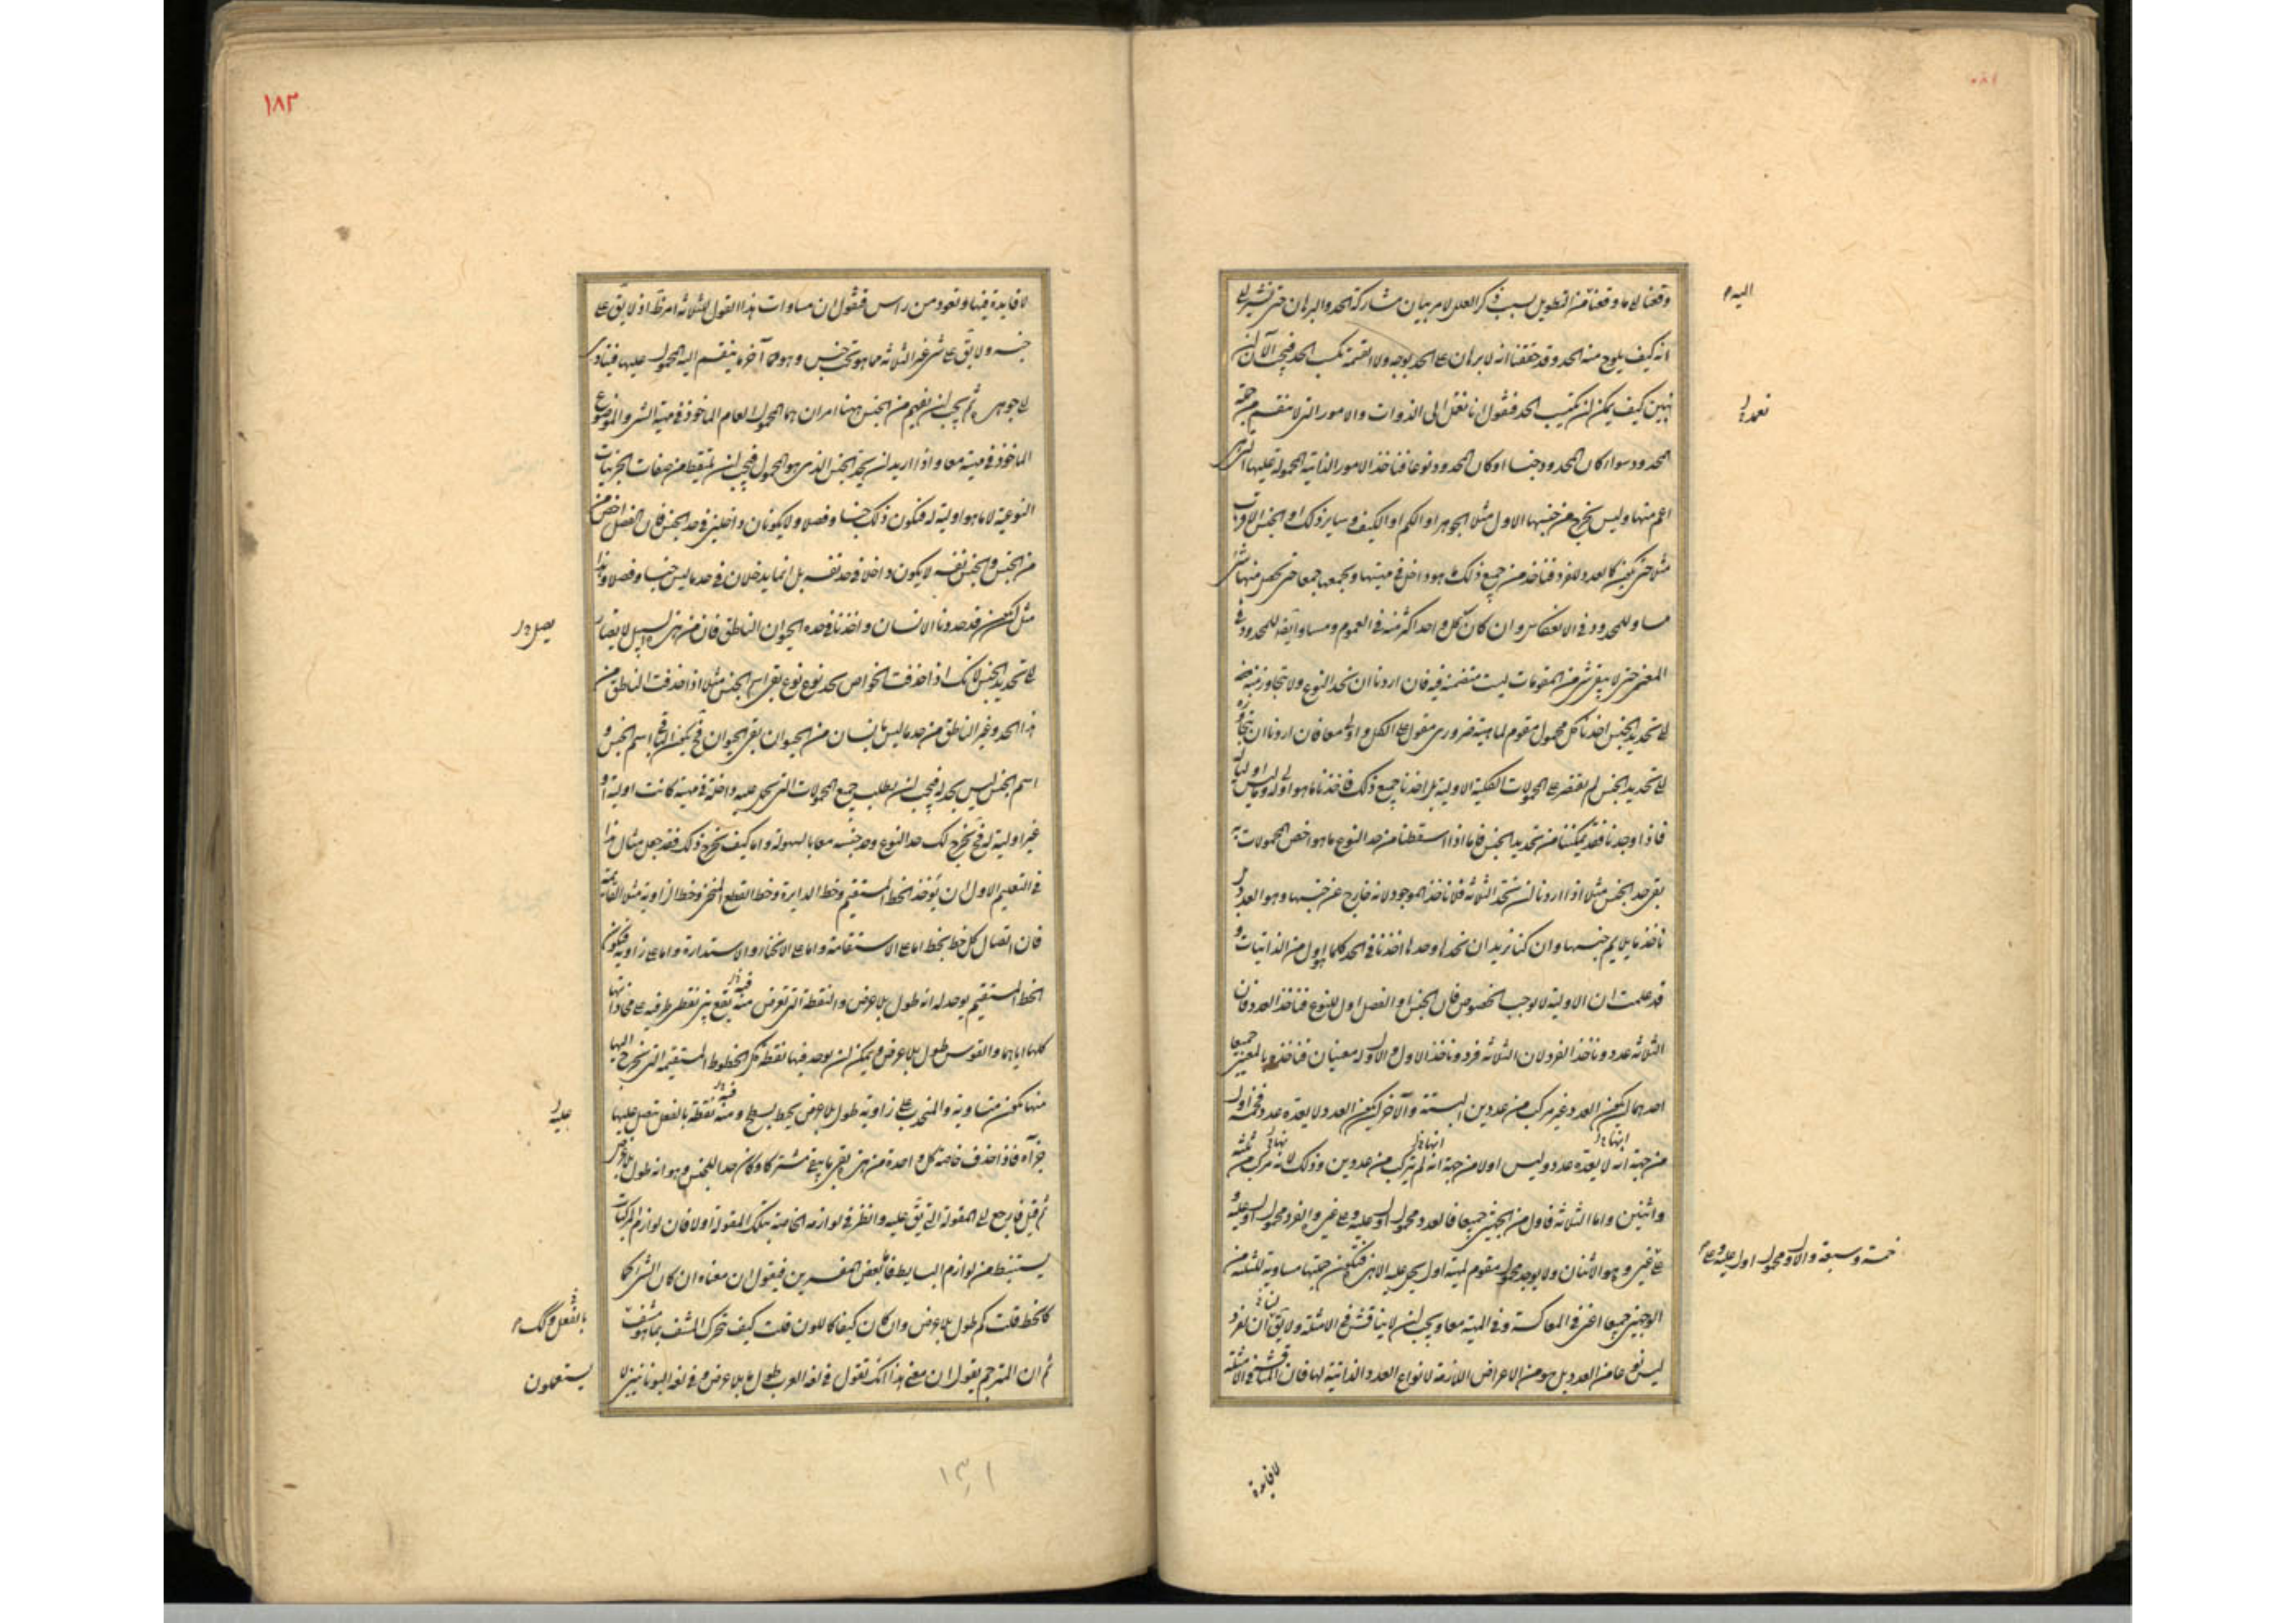 وقعنا الى ما وقعنا من التطويل بسبب ذكر العلل لامر بيان مشاركة الحد والبرهان حتى نشير الى
انه كيف يلوح منه الحد وقد حققنا انه لا برهان على الحد بوجه ولا القسمة تكسب الحد فيجب الآن ان
نبين كيف يمكن ان يكتسب الحد فنقول انا نعمل الى الذوات والامور التى لا تنقسم من جهة
المحدود سواء كان المحدود جنسا او كان المحدود نوعا فناخذ الامور الذاتية المحمولة عليها التى هى
اعم منها وليس يخرج من جنسها الاول مثلا الجوهر او الكم او الكيف وساير ذلك او الجنس الاقرب
فناخذ من جميع ذلك ما هو داخل فى مهيتها ونجمعها جمعا حتى يحصل منها شىء
مساو للمحدود فى الانعكاس وان كان كل واحد اكثر منه فى العموم ومساو ايضا للمحدود فى
المعنى حتى لا يبقى شىء من المقومات ليست متضمنة فيه فان اردنا ان نحد النوع ولا نتجاوز منه
الى تحديد الجنس اخذنا كل محمول مقوم لماهيته ضرورى مقول على الكل واولى معا فان اردنا ان نتجاوزه
الى تحديد الجنس لم نقتصر على المحمولات الكلية الاولية بل اخذنا جميع ذلك فاخذنا ما هو اولى له وما ليس اوليا
فاذا وجدناه فقد يمكننا من تحديد الجنس فانا اذا اسقطنا من حد النوع ما هو اخص المحمولات به
بقى حد الجنس مثلا اذا اردنا ان نحد الثلاثة فلا ناخذ الموجود لانه خارج عن جنسها وهو العدد بل
ناخذ ما يلايم جنسها وان كنا نريد ان نحدها وحدها اخذنا فى الحد كلما هو اول من الذاتيات و
قد علمت ان الاولية لا توجب الخصوص فان الجنس او الفصل اول للنوع فناخذ العدد فان
الثلاثة عدد وناخذ الفرد لان الثلاثة فرد وناخذ الاول والاول له معنيان فناخذه بالمعنيين جميعا
احدهما ان يكون العدد غير مركب من عددين البتة والآخر ان يكون العدد لا يعده عدد فخمسة اول
من جهة انه لا يعده عدد وليس اولا من جهة انه لم يتركب من عددين وذلك لانه مركب من ثلثة
واثنين واما الثلاثة فاول من الجهتين جميعا فالعدد محمول اول عليه وعلى غيره والفرد محمول اول عليه و
على غيره وهو الاثنان ولا يوجد محمول مقوم لمهيته اول يحمل عليه الا هى فتكون جملتها مساوية للثلثة من
الوجهين جميعا اعنى فى المعاكسة وفى المهية معا ويجب ان لا يناقش فى الامثلة ولا يقال ان الفرد
ليس نوعا من العدد بل هو من الاعراض اللازمة لانواع العدد والذاتية لها فان المناقشة فى الامثلة
اليه م
خمسة وسبعة والاول محمول اول عليه وعلى م
لا فايدة
١٨٣
لا فايدة فيها ونعود من راس فنقول ان مساوات هذا القول للثلاثة امر ظاهر اذ لا يقال على
جنسه ولا يقال على شىء غير الثلاثة مما هو تحت جنس وهو آخر ما ينقسم اليه المحمول عليها فيتادى
الى جوهره ثم يجب ان يفهم من الجنس ههنا امران هما المحمول العام الماخوذ فى مهية الشىء والموضوع
الماخوذ فى مهيته معا واذا اريد ان يحد الجنس الذى هو المحمول فيجب ان يلتقط من صفات الجزئيات
النوعية لا ما هو اولية له فتكون ذلك جنسا وفصلا ولا يكونان داخلين فى حد الجنس فان الفصل اخص من
من الجنس والجنس نفسه لا يكون داخلا فى حد نفسه بل انما يدخلان فى حد ما ليس جنسا وفصلا وهذا
مثل ان تكون قد حددنا الانسان واخذنا فى حده الحيوان الناطق فان من هذه السبيل لا يصار
الى تحديد الجنس لانك اذا حذفت الخواص بحد نوع نوع بقى اسم الجنس مثلا اذا حذفت الناطق من
هذا الحد وغير الناطق من حد ما ليس بانسان من الحيوان بقى الحيوان فحينئذ يكون الباقى اسم الجنس و
اسم الجنس ليس بحد له فيجب ان يطلب جميع المحمولات التى تحمل عليه داخلة فى مهيته كانت اولية او
غير اولية له فحينئذ يخرج لك حد النوع وحد جنسه معا بالسهولة واما كيف يخرج ذلك فقد جعل مثال هذا
فى التعليم الاول ان يؤخذ الخط المستقيم وخط الدايرة وخط القطع المنحنى وخط الزاوية مثلا القائمة
فان اتصال كل خط بخط اما على الاستقامة واما على الانحناء والاستدارة واما على زاوية فيكون
الخط المستقيم يوجد له انه طول بلا عرض والنقطة التى تفرض فيه يقع بين نقطتى طرفيه على محاذاتها
كلها اياهما والقوس طول بلا عرض ويمكن ان يوجد فيها نقطة كل الخطوط المستقيمة التى تخرج اليها
منها تكون متساوية والمنحدب على زاوية طول بلا عرض يحيط بسطح وفيه نقطة بالفعل تتصل عليها
جزآه فاذا حذف خاصة كل واحدة من هذه بقى باقيه مشتركا وكان حدا للجنس وهو انه طول بلا عرض
ثم قيل فليرجع الى المقولة التى يقال عليه وانظر فى لوازمه الخاصة بتلك المقولة اولا فان لوازم المركبات
يستنبط من لوازم البسايط فاما بعض المفسرين فيقول ان معناه ان كان الشىء كما
كالخط قلت كم طول بلا عرض وان كان كيفا كاللون قلت كيف يحرك المشف بما هو مشف
ثم ان المترجم يقول ان معنى هذا انك تقول فى لغة العرب طول بلا عرض وفى لغة اليونانيين لا
يستعملون
١٣١